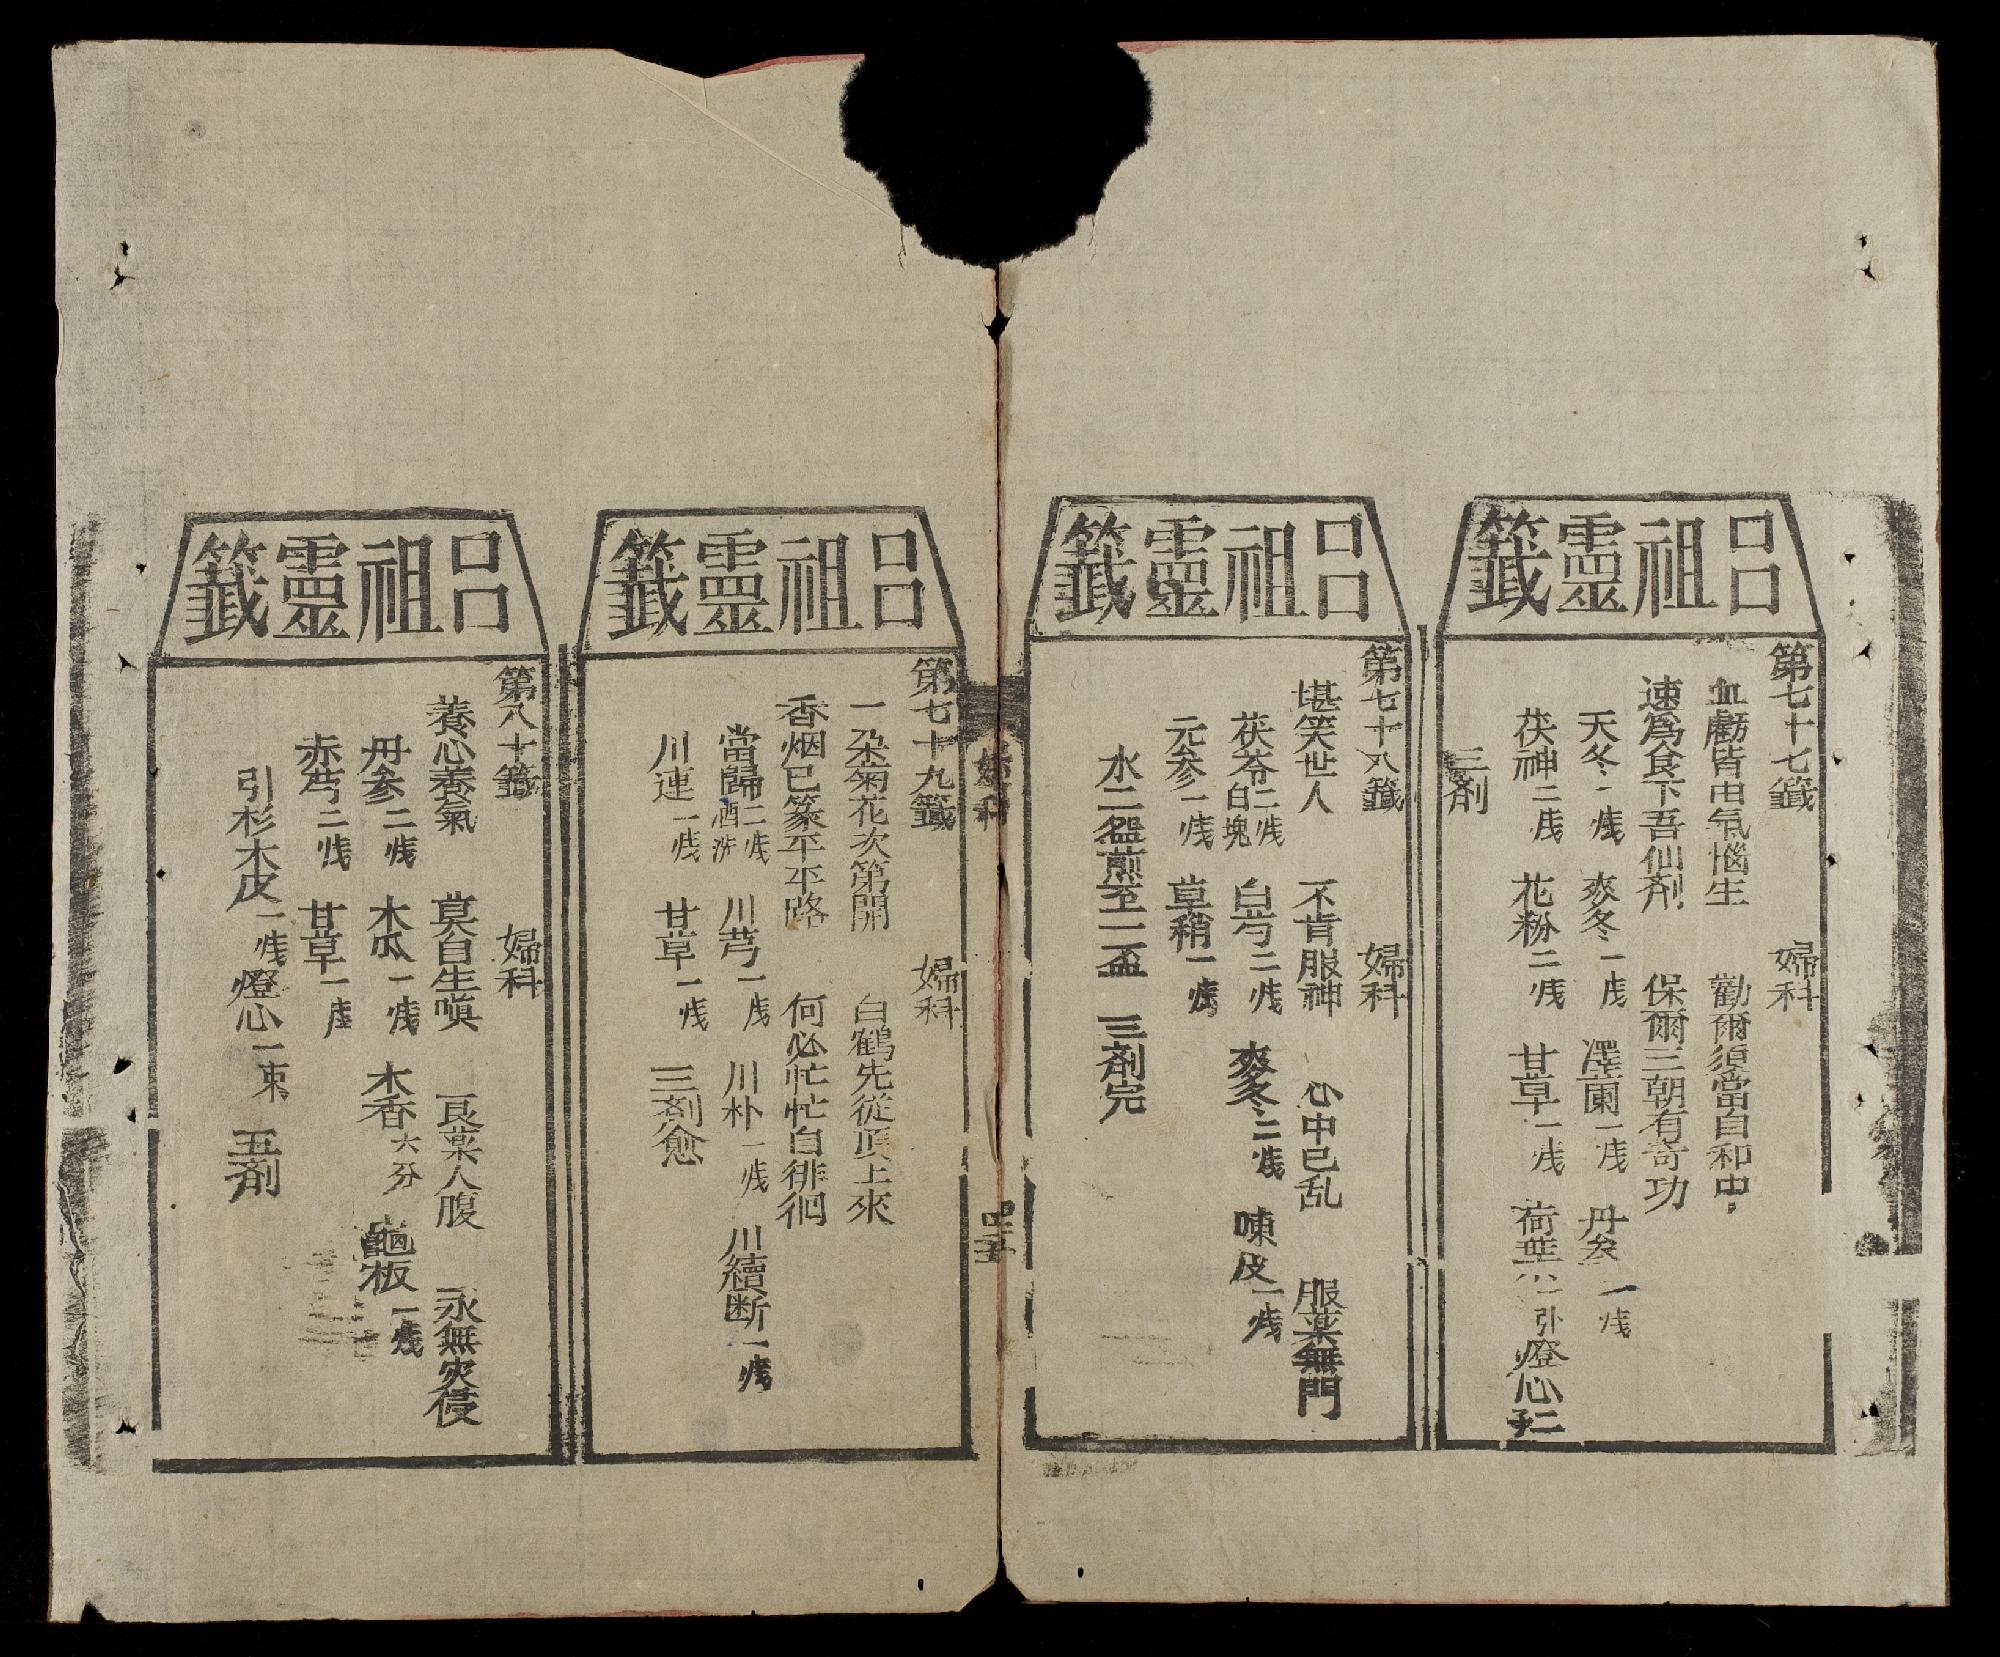 呂祖靈籤
第七十七籤 婦科
血虧皆由氣惱生 勸爾須當自和中
速為食下吾仙剤 保爾三朝有奇功
天冬一戋 麥冬一戋 澤蘭一戋 丹参一戋
茯神二戋 花粉二戋 甘草一戋 荷葉 引燈心二
三剤
呂祖靈籤
第七十八籤 婦科
堪笑世人 不肯服神 心中已乱 服藥無門
茯苓二戋白塊 白芍二戋 麥冬二戋 陳皮一戋
元参一戋 草稍一戋
水二盌煎至一盃 三剤完
婦科
四十五
呂祖靈籤
第七十九籤 婦科
一朶菊花次第開 白鶴先從頂上來
香烟已篆平平路 何必忙忙自徘徊
當歸二戋酒洗 川芎一戋 川朴一戋 川續断一戋
川連一戋 甘草一戋 三剤愈
呂祖靈籤
第八十籤 婦科
養心養氣 莫自生嗔 良藥人腹 永無灾侵
丹参二戋 木瓜一戋 木香六分 龜板一戋
赤芍二戋 甘草一戋
引杉木皮一戋 燈心一束 五剤